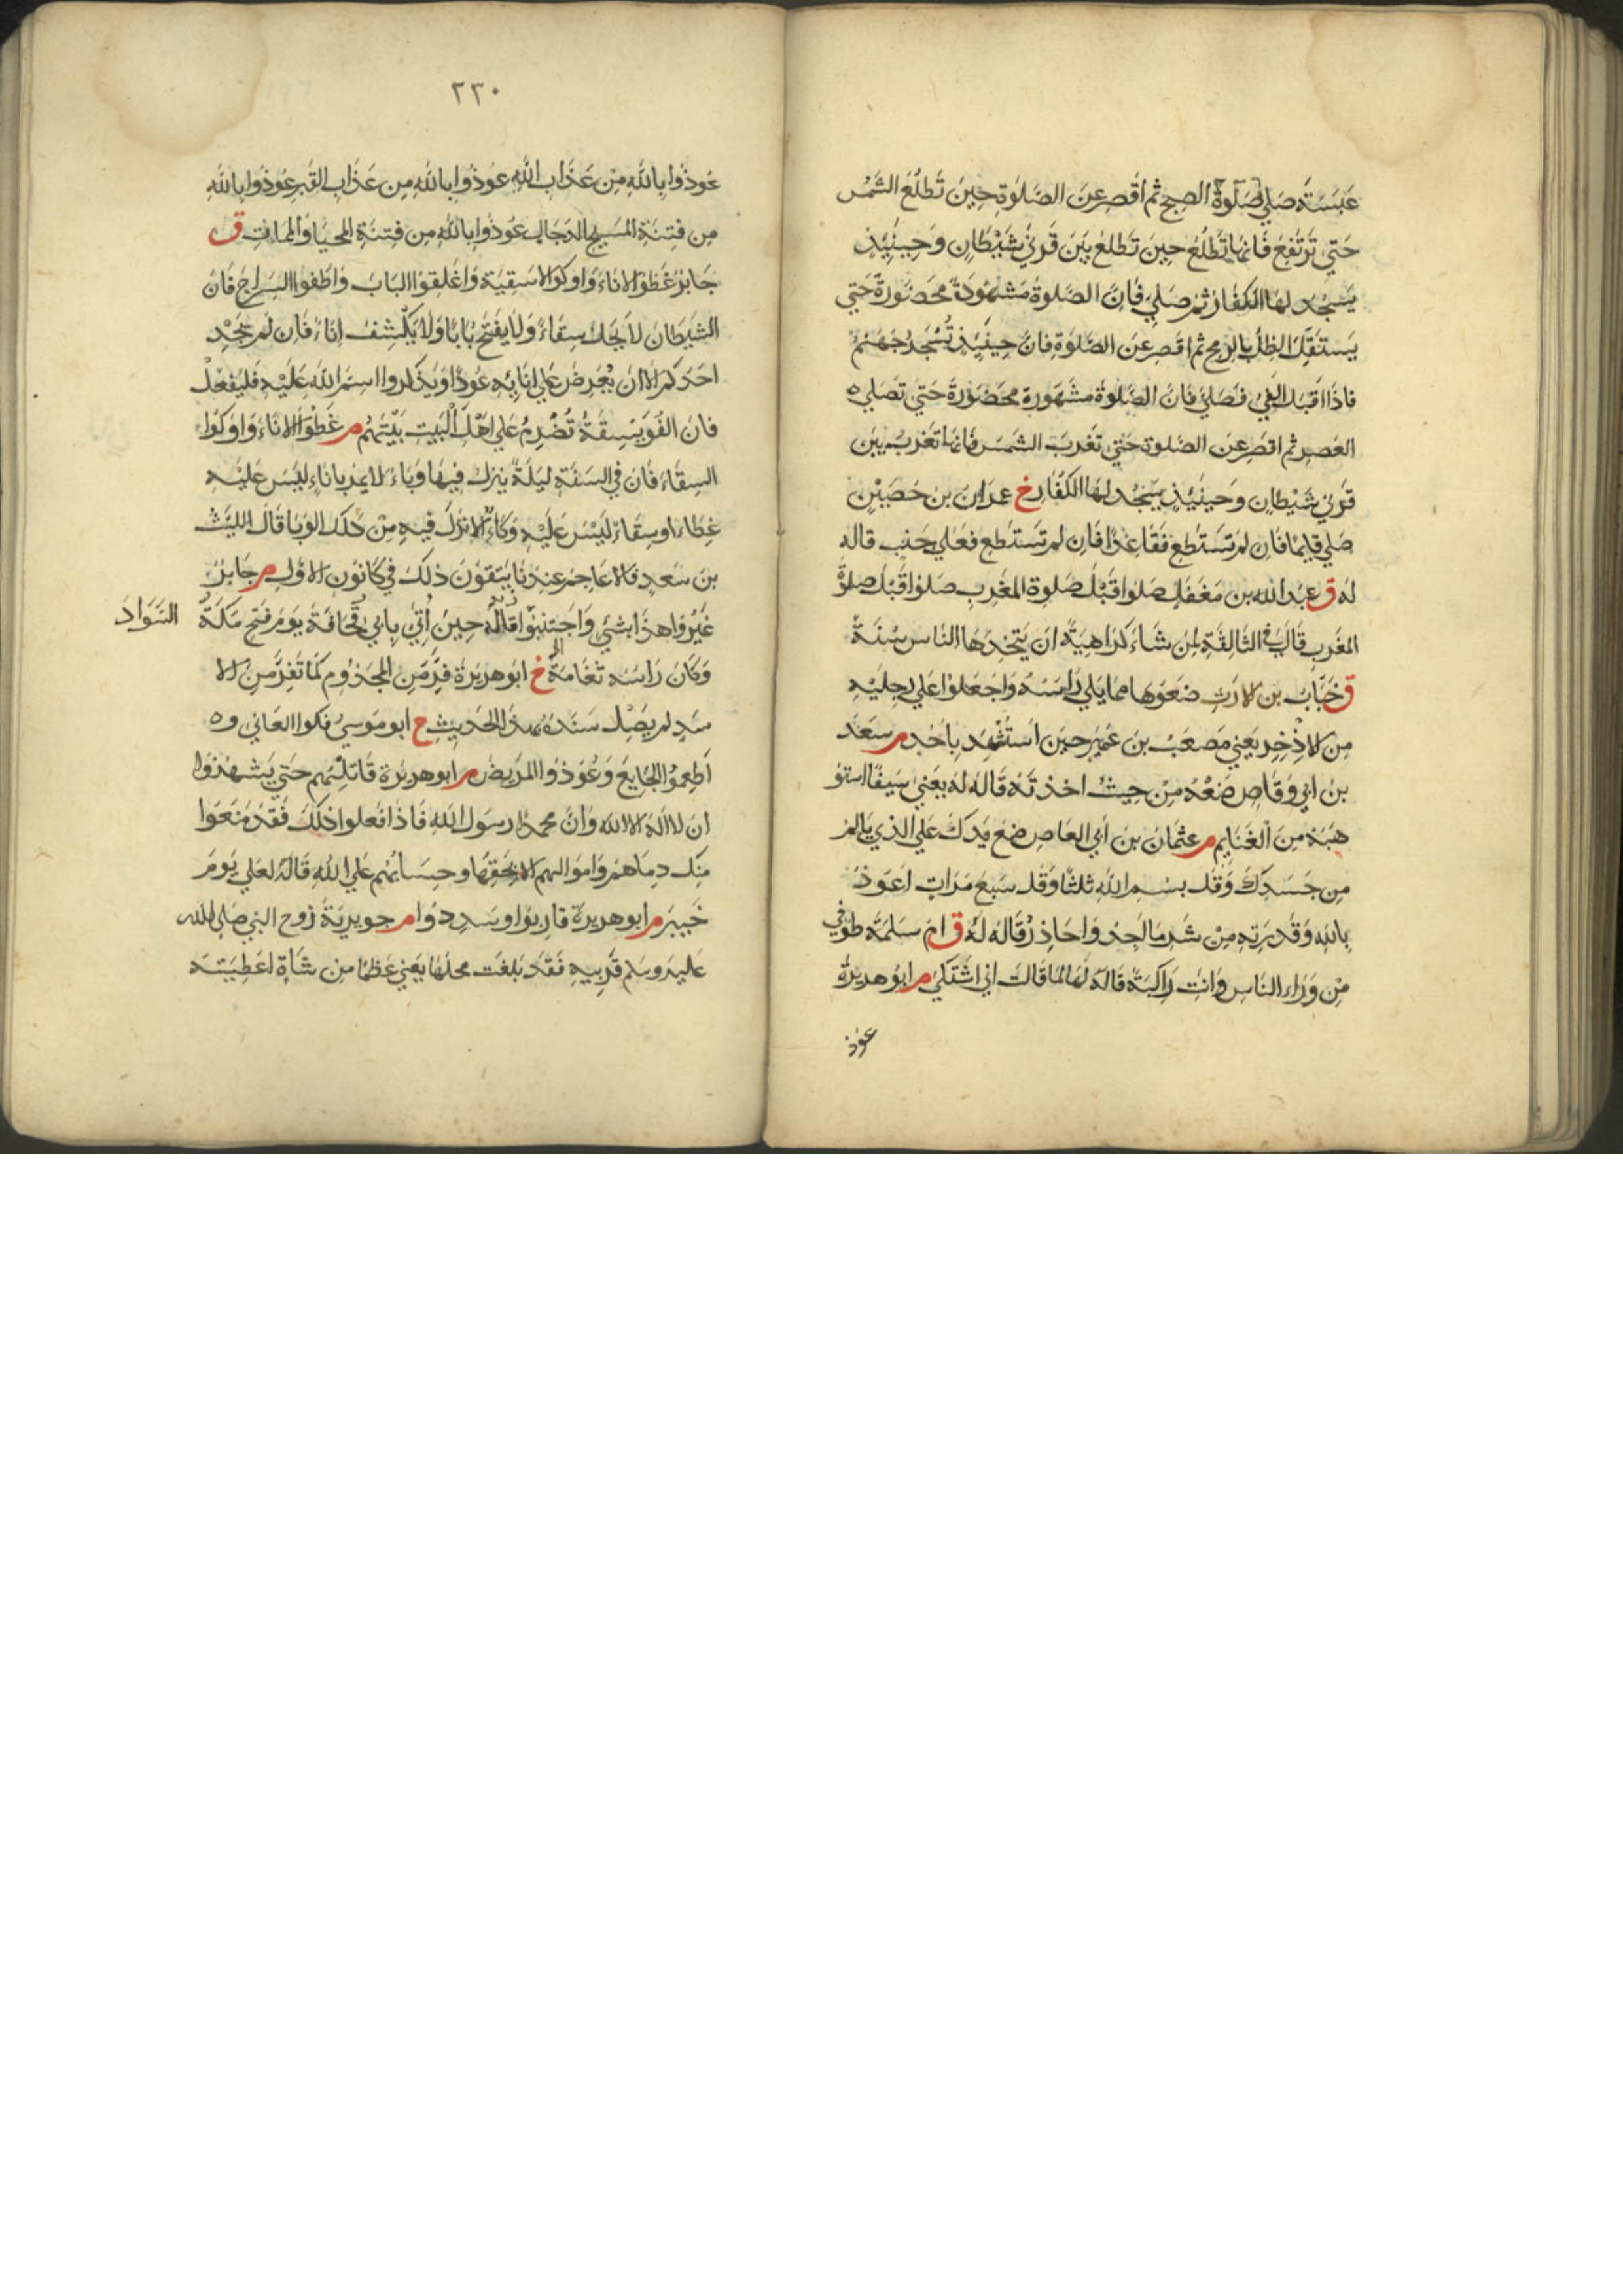 عَبَسَةَ صَلِّي صَلٰوةَ الصبح ثم اَقصر عن الصَلٰوةِ حِينَ تَطلُعُ الشَّمْس
حَتي تَرتَفِعَ فَانهَا تَطلُعُ حينَ تَطلعُ بَيْنَ قَرنَيْ شَيْطَانٍ وَحِينَئِذٍ
يَسجُد لهَا الكفَارُ ثمَ صَلِي فَاِنَّ الصَلوةَ مَشهُودَةٌ مَحضُورَةٌ حَتي
يَستَقِلَّ الظِلُّ بالرمح ثم اقصر عَن الصَّلوَةِ فانَّ حِينَئِذٍ تُسْجَرُ جَهَنمُ
فاذا اقبَلَ الفَيْءُ فَصَلي فانَ الصَّلوةَ مشهُورة مَحضُورَةٌ حَتي تصَلي ه
العَصِر ثم اقصر عَن الصَلوة حَتي تَغربَ الشَمسُ فَانهَا تَغربُ بَيْنَ
قَرني شَيْطان وَحينَئِذٍ يَسْجُد لهَا الكُفار خ عمران بن حُصَيْن
صَلي قايمًا فَان لم تَستَطع فقَاعدًا فَاِن لم تَستَطع فعَلي جَنب قاله
له ق عبد الله بن مغَفَل صَلوا قَبْلَ صَلوة المَغرب صَلوا قَبْلَ صلوة
المغَرب قالَ في الثَالِثَةِ لِمَن شَاءَ كَرَاهِيَةَ اَن يَتخِذهَا الناس سُنَةً
ق خَبَّاب بن الارَتِ ضعُوهَا ممَا يَلي رَاسَهُ وَاجعَلوا عَلي رِجليْهِ
مِن الاذْخِرِ يَعني مصعَبْ بن عُمَير حينَ استُشْهِدَ بِاُحُدٍ م سعَد
بن ابي وقَاصٍ ضعْهُ مِنْ حيثُ اخذتَهُ قَالهُ لهُ يَعني سَيفًا استَو
هَبَهُ مِنَ الغَنَايِم م عثمَانَ بن أبي العَاصِ ضع يَدكَ عَلي الذي يَالم
مِن جَسَدِكَ وَقُل بسم الله ثلثًا وَقُل سَبعَ مَرَاتٍ اعَوذ
بِالله وَقدرَتِهِ مِنْ شَرِ مَا اَجِدُ وَاحَاذِرُ قَالهُ لهُ ق ام سَلَمَةَ طوفي
مِن وَرَاءِ النَاسِ وَانتِ رَاكبَةٌ قَالهُ لهَا لمَا قَالت اني اشتَكي م ابوُ هريرةُ
عوذ
٢٣٠
عُوذُوا بِاللهِ مِنْ عَذَابِ اللهِ عوذُوا بِاللهِ مِن عَذَاب القَبرِ عوذُوا بِاللهِ
مِن فِتنَةِ المَسيح الدجَال عوذُوا بِاللهِ مِن فتنَةِ المَحيَا وَالمَمَاتِ ق
جَابِرُ غَطُوا الانَاءَ وَاوكوا الاسقِيَةَ وَاَغلِقوا البَابَ وَاطفوا السِرَاج فَانَ
الشَيطَانَ لاَ يَحُل سِقَاءً وَلَا يَفتَحُ بَابًا وَلَا يَكْشِفُ اِنَاءً فَاِن لم يَجِدْ
احَدكم الا ان يَعْرِضَ عَلي انَايِهِ عوُدًا وَيَذكروا اسمَ الله عَلَيْهِ فَليَفعَلْ
فانَ الفُوَيْسِقَةَ تُضْرِمُ عَلي اَهْلِ البَيت بَيْتَهُم م غَطُّوا الانَاءَ وَاوكوا
السِقَاءَ فَانَ في السَنَةِ لَيلَةً يَنزِلُ فيهَا وَبَاءٌ لا يمر باِنَاءٍ ليسَ عَليْهِ
غِطَاء او سِقَاءٍ لَيْسَ عَلَيْهِ وِكَاءٌ الا نزلَ فيهِ مِنْ ذَلكَ الوَبَا قَالَ الليَثُ
بن سَعدٍ فالاعَاجِمُ عِندنَا يَتقُونَ ذلِكَ في كانُونِ الاوَلِ م جَابرٌ
غَيّرُوا هذَا بشَيْ وَاجتَنِبُوا السَّوَادَ قَالَهُ حينَ اُتيَ بِابي قُحَافَةَ يَومَ فتح مَكَةَ
وَكانَ رَاسُهُ ثَغَامَةٌ خ ابوُ هريرَةَ فِرَّ مِن المجذوم كمَا تَفِرَّ مِنَ الا
سَدِ لم يَصِل سَندهُ بهذَا الحَديثِ خ ابو موَسي فكوا العَاني و ه
اَطعِمُوا الجَايِعَ وَعُوذوا المَريضَ م ابو هريرَة قَاتِلهُم حَتي يَشهدُوا
ان لا اله الا الله وَانَّ محمدًا رسَول الله فَاذَا فعلوا ذلكَ فقَدْ مَنعَوا
مِنكَ دِمَاهُم وَاموَالهم الا بحَقِهَا وحِسَابُهم عَلي الله قَالهُ لعَلي يَومَ
خَيبَر م ابو هريرة قارِبُوا وسَدِدوُا م جويرِيَةَ زوج النبي صَلي الله
عَليه وسلم قَرِبِيهِ فَقَد بَلغَت محلهَا يَعني عَظمًا من شاةٍ اعطِيَتهُ